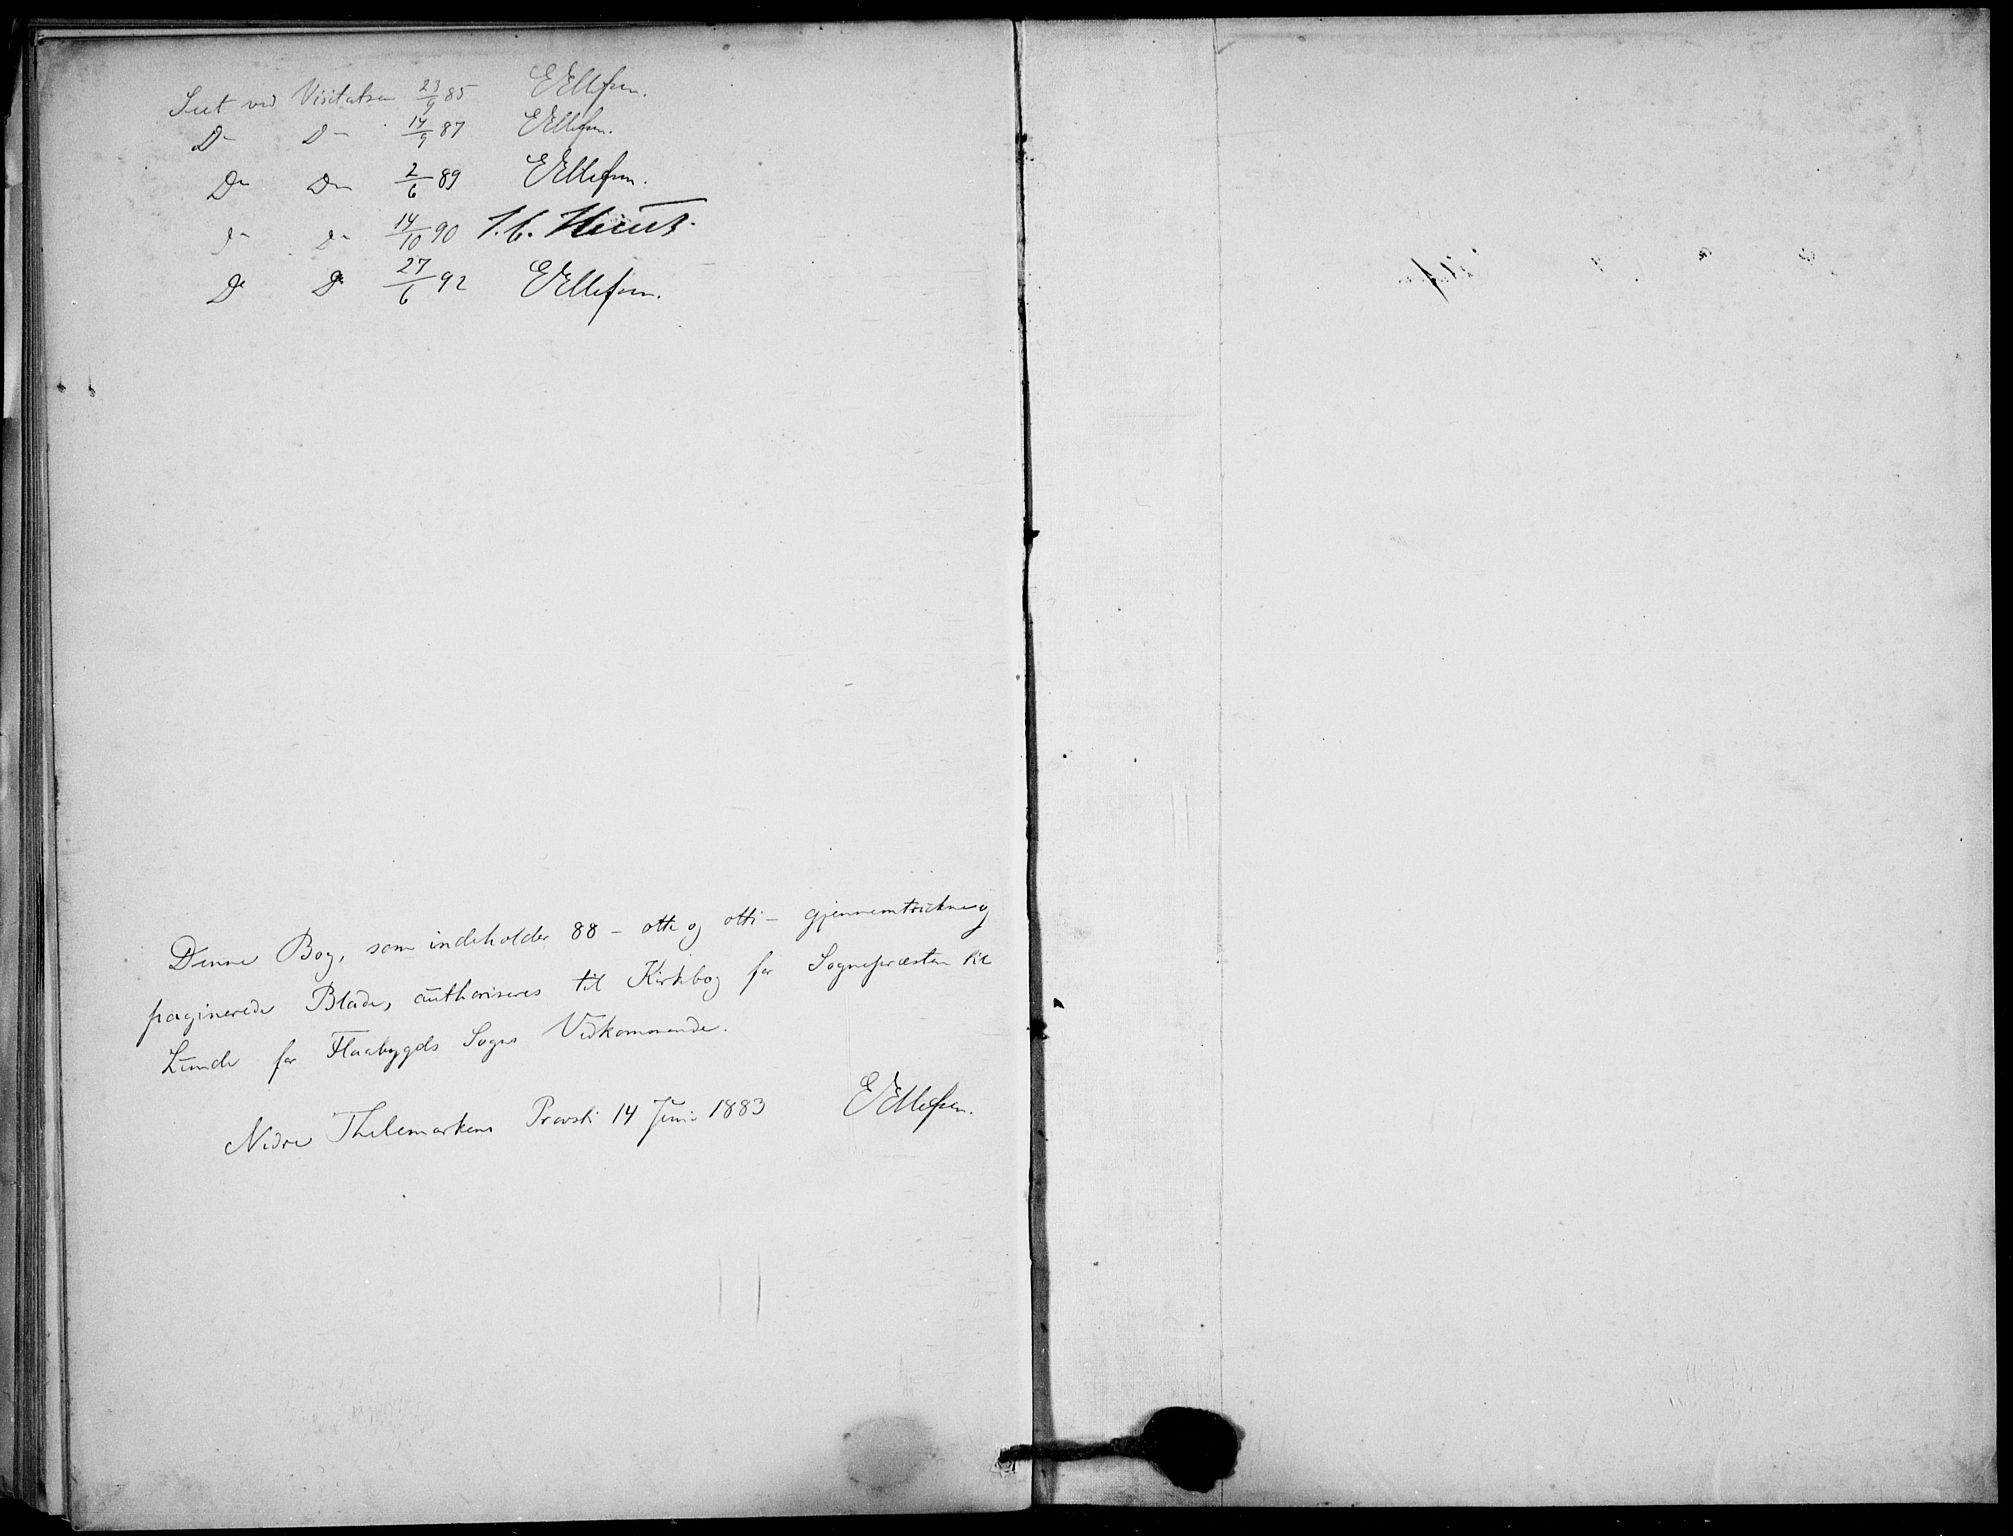 Seet ved Visitatsen 23/9 85 E Ellefsen.
Do Do 14/9 87 E Ellefsen.
Do Do 2/6 89 E Ellefsen.
do do 14/10 90
Do Do 27/6 92 E Ellefsen.
Denne Bog, som indeholder 88 - otte og otti - gjennemtrukne og
paginerede Blade, authoriseres til Kirkebog for Sognepræsten til
Lunde for Flaabygds Sogns Vedkommende.
Nedre Thelemarkens Provsti 14 Juni 1883 E Ellefsen.